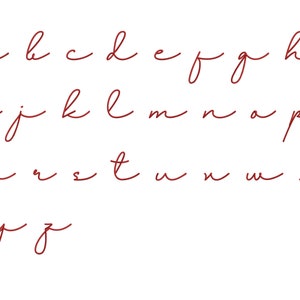 b c d e f g h
j k l m n o p
r s t u n w
y z